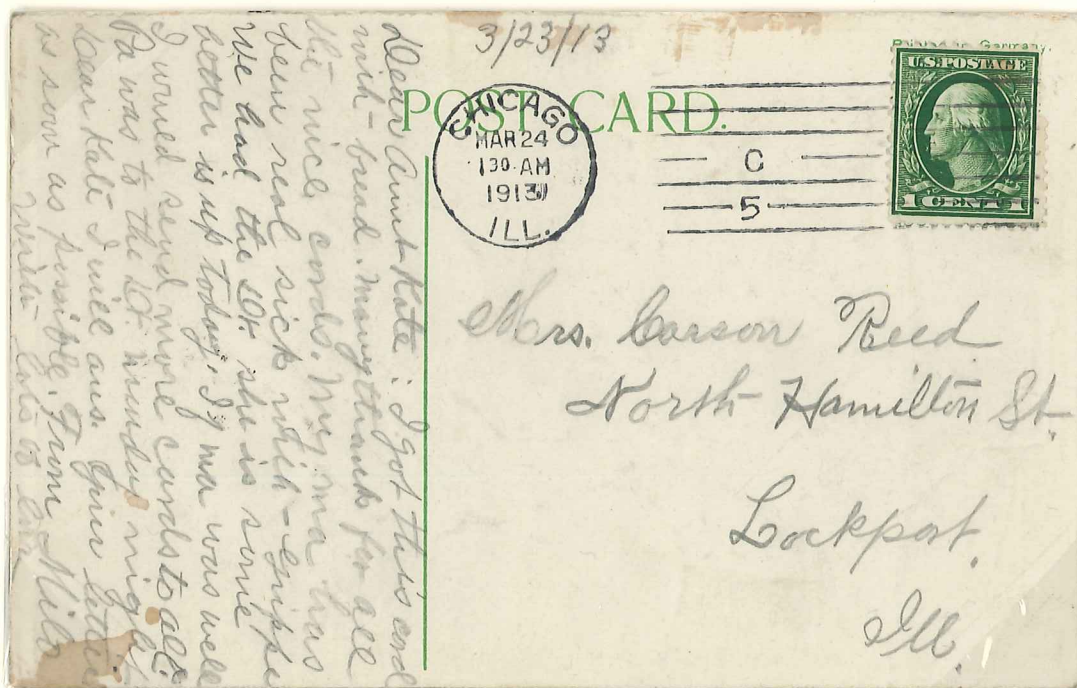 3/23/13
Printed in Germany.
POST CARD.
CHICAGO
MAR 24
1 30 AM
1913
ILL.
C
5
U.S. POSTAGE
1 CENT 1
Mrs. Carson Reed
North Hamilton St.
Lockport,
Ill.
Dear Aunt Kate: I got this card
with bread. Many thanks for all
the nice cards. My ma has
been real sick with Grippe
We had the Dr. she is some
better is up today. If ma was well
I would send more cards to all.
Pa was to the Dr. Munday night
Dear Kate I will ans. your letter
as soon as possible. From Milo
Write lots to